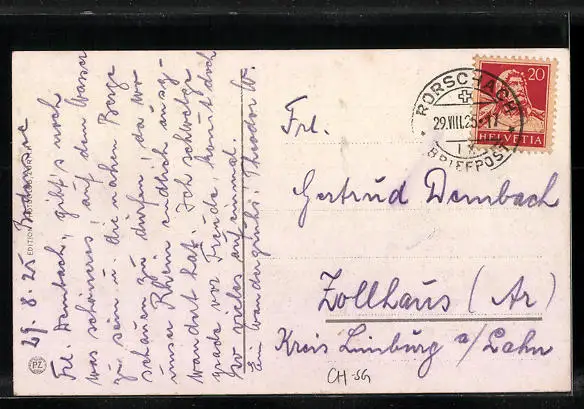 29. 8. 25 Bodensee
Frl. Dembach, gibt's noch
was schöneres, auf dem Wasser
zu sein u. die nahen Berge
schauen zu dürfen! da wo
unser Rhein endlich ausge-
wandert hat. Ich schwelge
grade vor Freude, kommt doch
so vieles auf einmal.
Ein Wandergruss! Theodor W.
EDITION PHOTOGLOB, ZÜRICH
PZ
RORSCHACH
29.VIII.25.-17
BRIEFPOST
20
HELVETIA
Frl.
Gertrud Dembach
Zollhaus (Ar)
Kreis Limburg a/Lahn
CH-SG